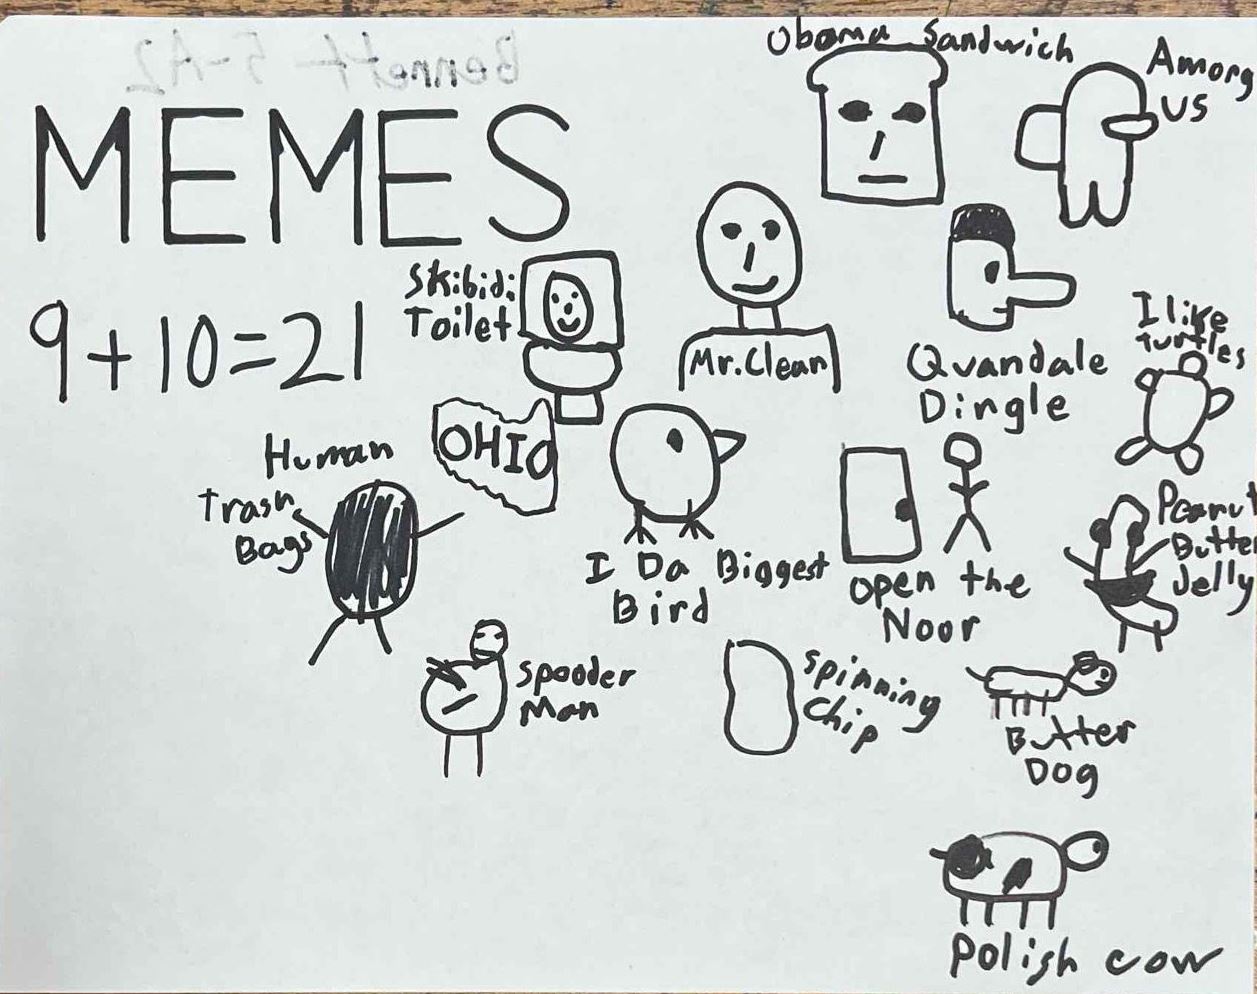 Bennett 5-A2
MEMES
9+10=21
Obama Sandwich
Among
US
Skibidi
Toilet
Mr.Clean
Quandale
Dingle
I like
turtles
OHIO
Human
Trash
Bags
I Da Biggest
Bird
open the
Noor
Peanut
Butter
Jelly
Spooder
Man
Spinning
Chip
Butter
Dog
Polish cow